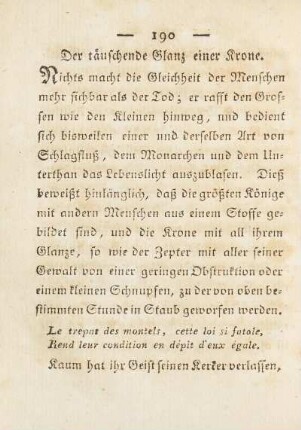 — 190 —
Der täuschende Glanz einer Krone.
Nichts macht die Gleichheit der Menschen
mehr sichbar als der Tod; er rafft den Gros-
sen wie den Kleinen hinweg, und bedient
sich bisweilen einer und derselben Art von
Schlagfluß, dem Monarchen und dem Un-
terthan das Lebenslicht auszublasen. Dieß
beweißt hinlänglich, daß die größten Könige
mit andern Menschen aus einem Stoffe ge-
bildet sind, und die Krone mit all ihrem
Glanze, so wie der Zepter mit aller seiner
Gewalt von einer geringen Obstruktion oder
einem kleinen Schnupfen, zu der von oben be-
stimmten Stunde in Staub geworfen werden.
Le trepat des montels, cette loi si fatale.
Rend leur condition en dépit d'eux égale.
Kaum hat ihr Geist seinen Kerker verlassen,